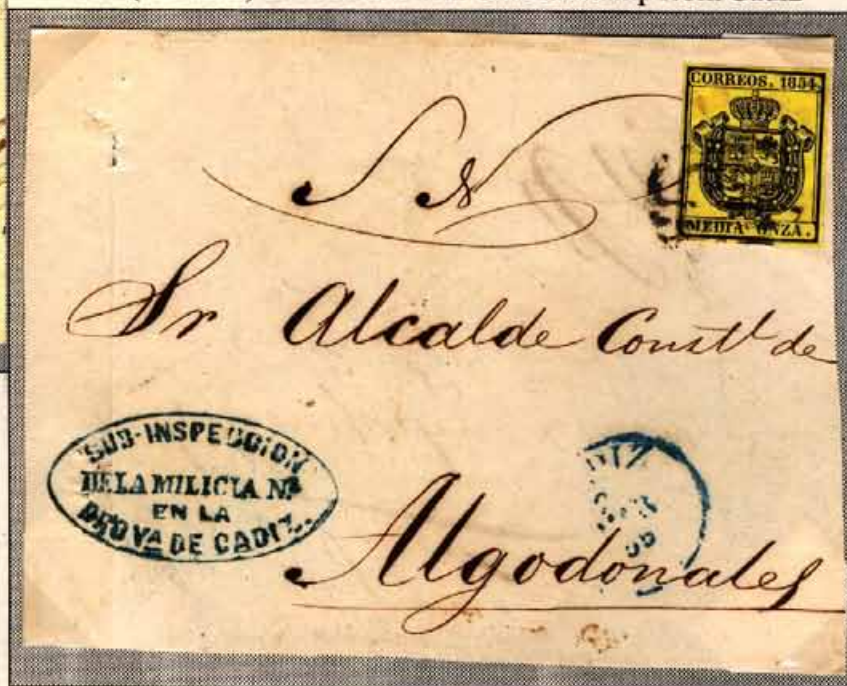 CORREOS. 1854.
MEDIA ONZA.
S N
Sr Alcalde Constl de
SUB-INSPECCION
DE LA MILICIA Nl
EN LA
PROVa DE CADIZ.
Algodonales